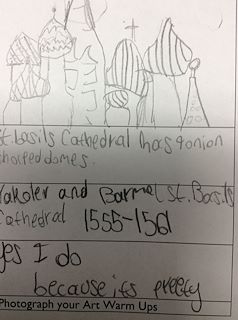 St. basils Cathedral has 9 onion
shaped domes.
Yakoler and Barmal St. Basils
Cathedral 1555-1561
yes I do
because its preety
Photograph your Art Warm Ups